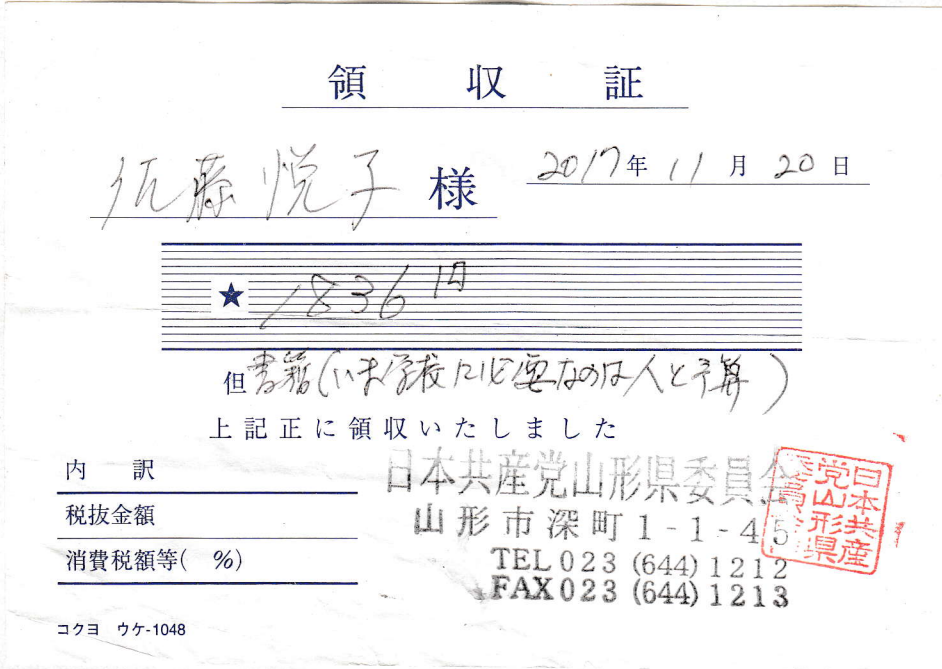 領収証
佐藤悦子 様
2017年11月20日
★ 1836円
但 書籍(いま学校に必要なのは人と予算)
上記正に領収いたしました
内訳
税抜金額
消費税額等( %)
コクヨ ウケ-1048
日本共産党山形県委員会
山形市深町1-1-45
TEL 023 (644) 1212
FAX 023 (644) 1213
日本共産
党山形県
委員会